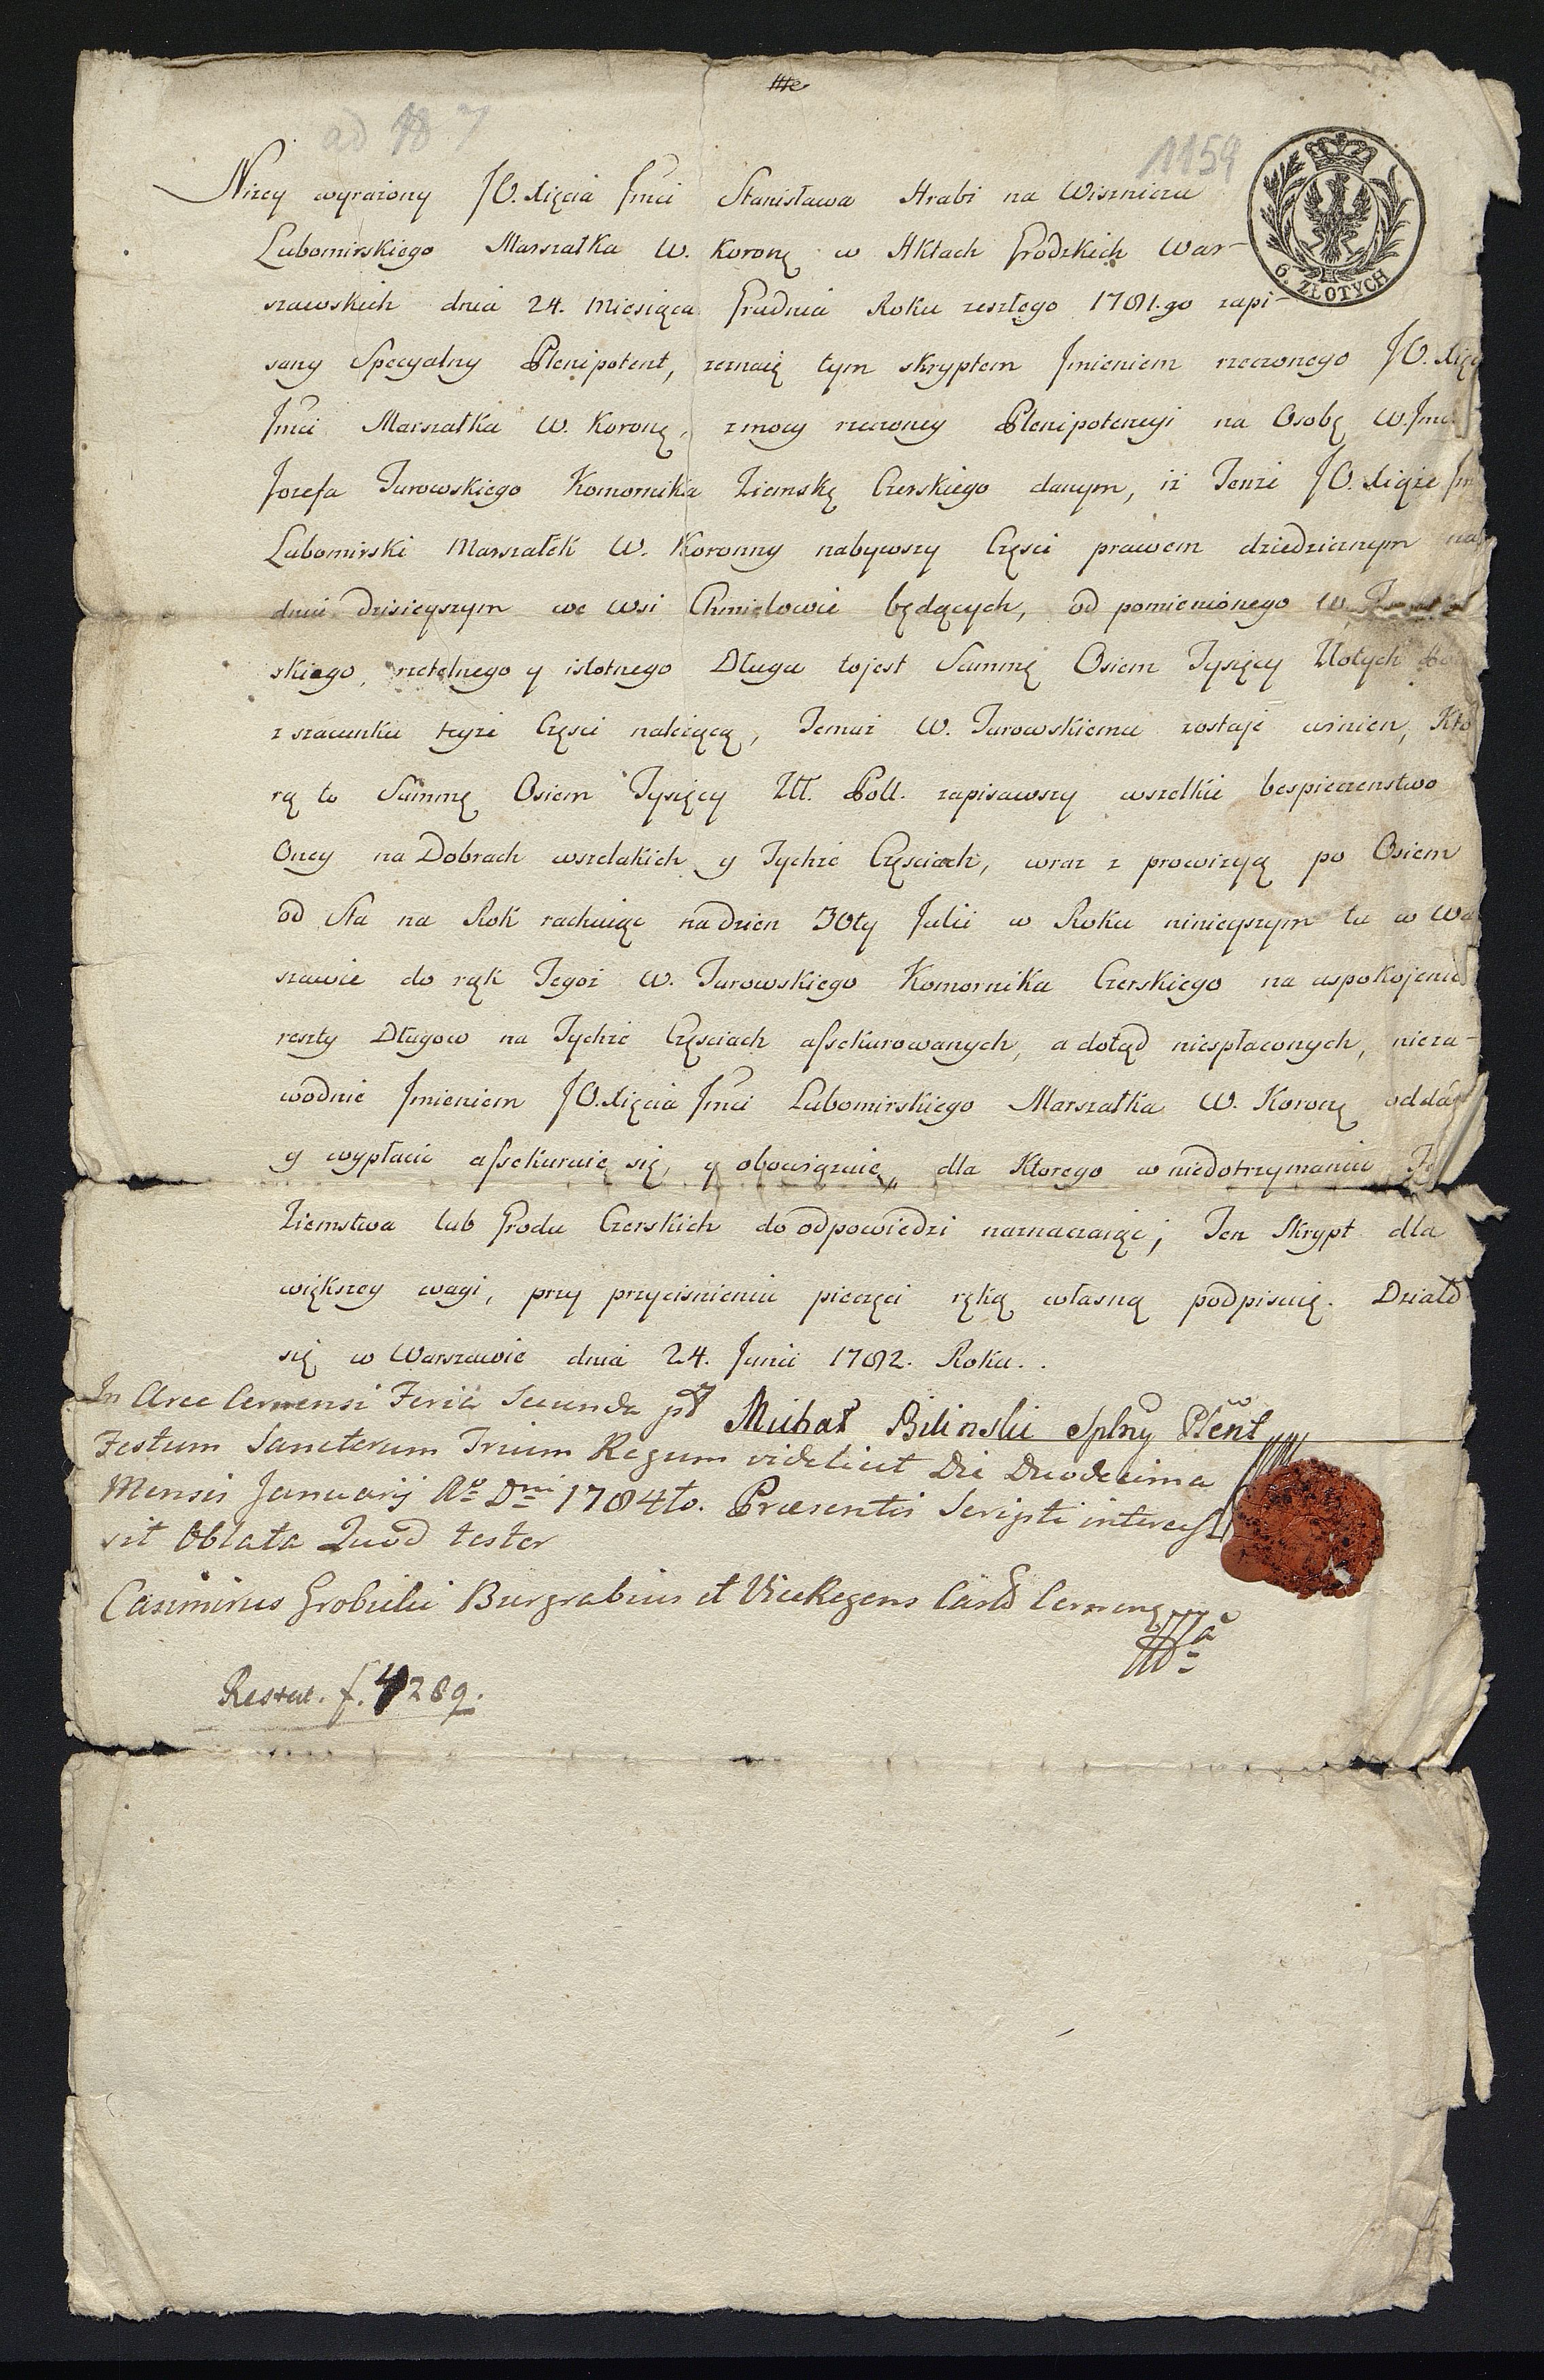 ad 187
1159
6. ZŁOTYCH
Niżey wyrażony JO. Xięcia Jmci Stanisława Hrabi na Wiszniczu
Lubomirskiego Marszałka W. Koronę w Aktach Grodzkich War-
szawskich dnia 24. Miesiąca Grudnia Roku zeszłego 1781.go zapi-
sany Specyalny Plenipotent, zeznaię tym skryptem Jmieniem rzeczonego JO. Xię
Jmci Marszałka W. Koronę, z mocy rzeczoney Plenipotencyi na Osobę W. Jmci
Jozefa Turowskiego Komornika Ziemskę Czerskiego danym, iż Tenże JO. Xiąże Jm
Lubomirski Marszałek W. Koronny nabywszy Części prawem dziedzicznym na
dniu dzisieyszym we Wsi Chmielowie będących, od pomienionego W.
skiego, rzetelnego y istotnego Długu tojest Summę Osiem Tysięcy Złotych
z szacunku tyże Części należącą, Temuż W. Turowskiemu zostaje winien, Kto
rą to Summę Osiem Tysięcy Złł. Poll. zapisawszy wszelkie bespieczenstwo
Oney na Dobrach wszelakich y Tychże Częściach, wraz z prowizyą po Osiem
od Sta na Rok rachuiąc na dzien 30ty Julii w Roku ninieyszym tu w Wa
szawie do rąk Tegoż W. Turowskiego Komornika Czerskiego na uspokojenie
reszty Długow na Tychże Częściach assekurowanych, a dotąd niespłaconych, nieza-
wodnie Jmieniem JO. Xięcia Jmci Lubomirskiego Marszałka W. Koronę oddać
y wypłacić assekuruię się, y obowiązuię,, dla Ktorego w niedotrzymaniu
Ziemstwa lub Grodu Czerskich do odpowiedzi naznaczaiąc; Ten Skrypt dla
większey wagi, przy przyciśnieniu pieczęci ręką własną podpisuię. Działo
się w Warszawie dnia 24. Junii 1782. Roku..
Michał Bilinski Splny Plent
In Arce Cernensi Feria Secunda pt
Festum Sanctorum Trium Regum videlicet Die Duodecima
Mensis Januarij Ao Dni 1784to. Præsentis Scripti interces
sit Oblata Quod testor
Casimirus Grobicki Burgrabius et ViceRegens Castr Cernens
Restat. f. 4289.